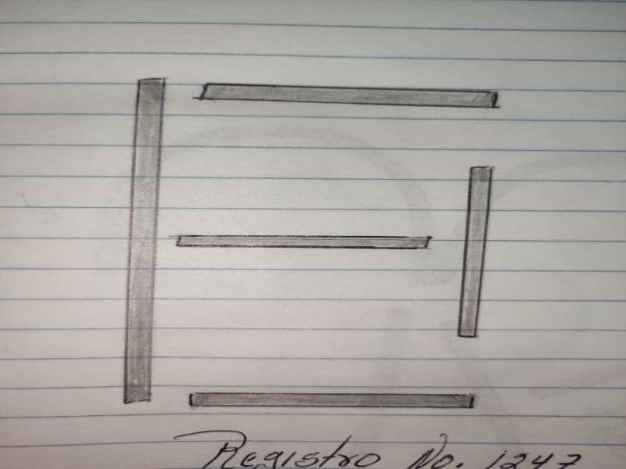 Registro No. 1247